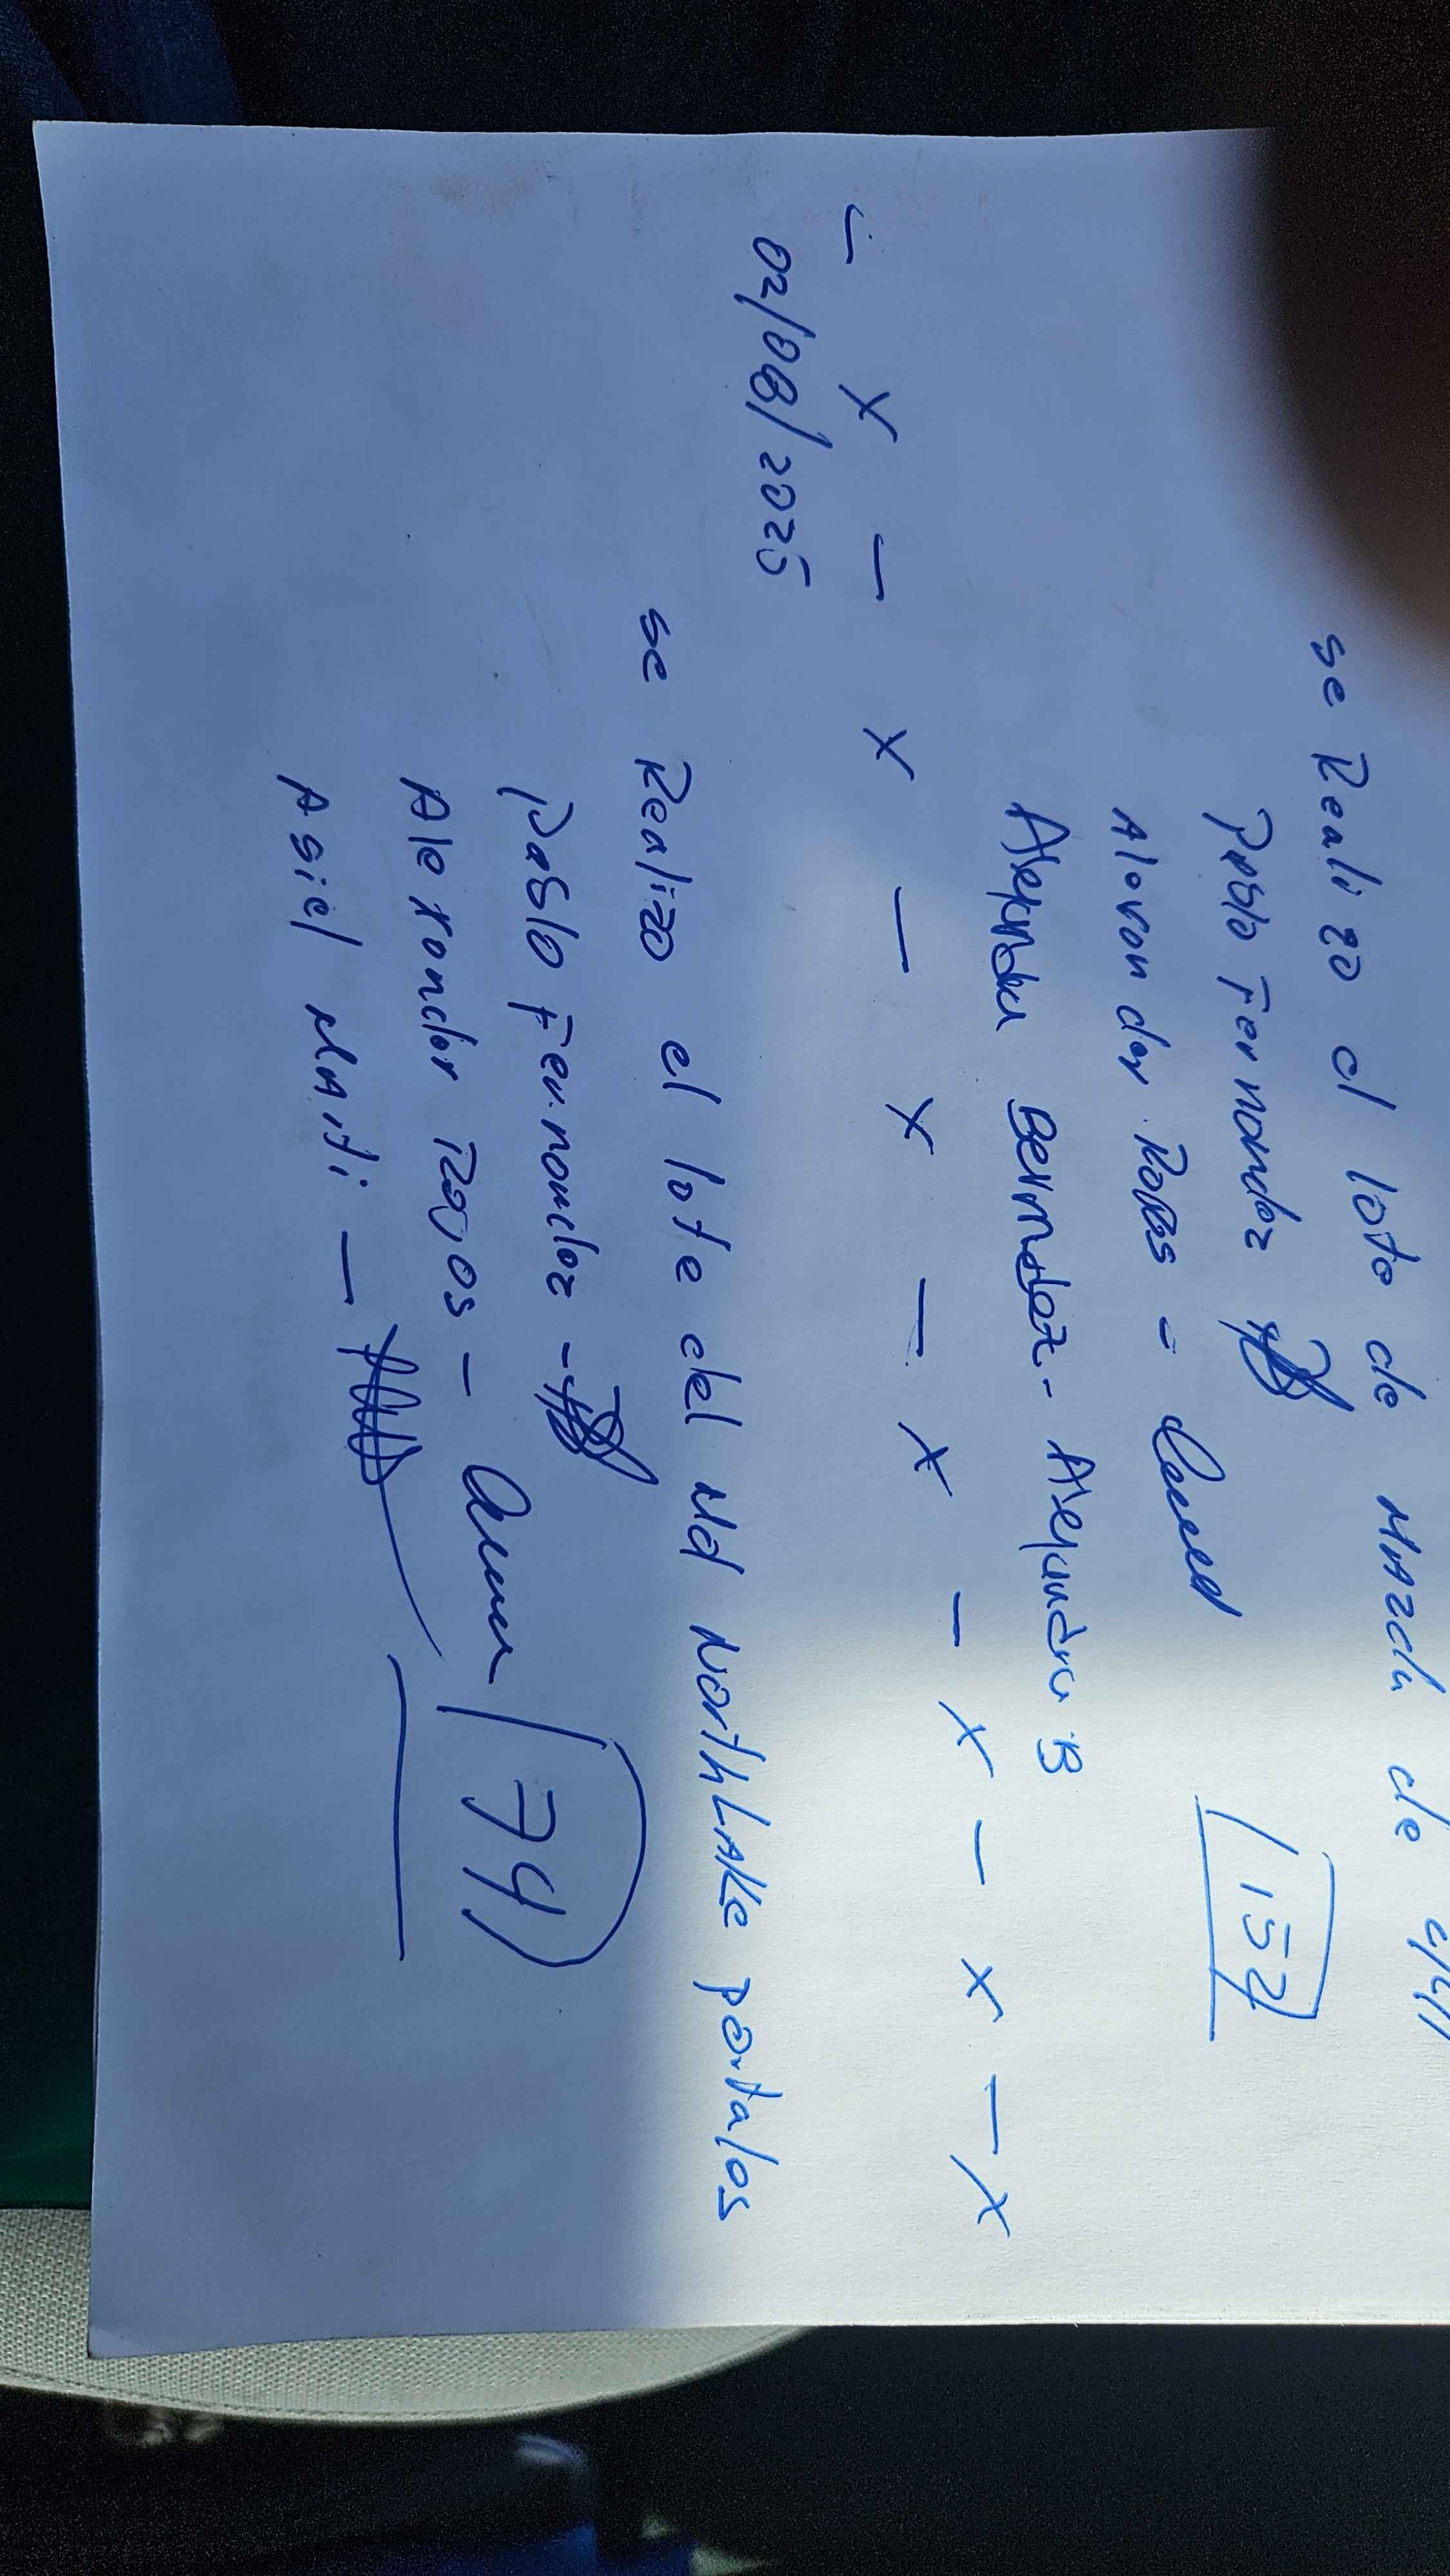 se Realizo el lote de Mazda de
Pablo Fernandez
Alexander Rojas -
Alejandra Bermudez - Alejandra B
157
- x - x - x - x - x - x - x
02/08/2025
se Realizo el lote del Md NorthLake portalos
Pablo Fernandez -
Alexander Rojos -
74
Asiel Marti -